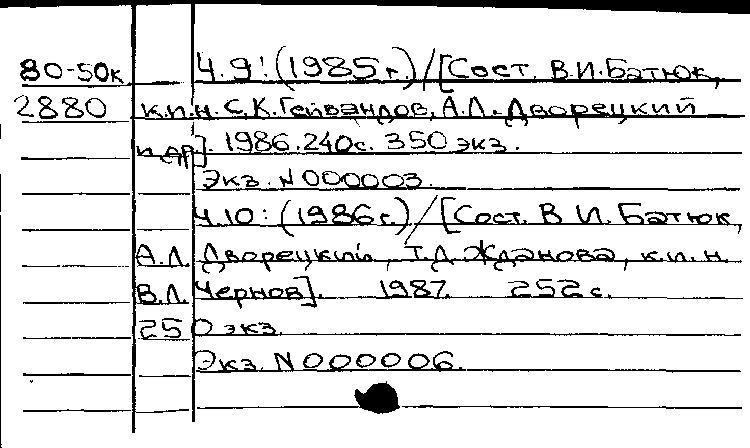 80-50к Ч.9: (1985г.)/[Сост. В.И.Батюк,
2880 к.п.н. С.К.Гейвандов, А.Л.Дворецкий
и др]. 1986.240с. 350 экз.
Экз. N000003.
Ч.10: (1986г.)/[Сост. В И. Батюк,
А.Л. Дворецкий, Т.Д. Жданова, к.п.н.
В.Л. Чернов]. 1987. 252с.
250 экз.
Экз. N000006.